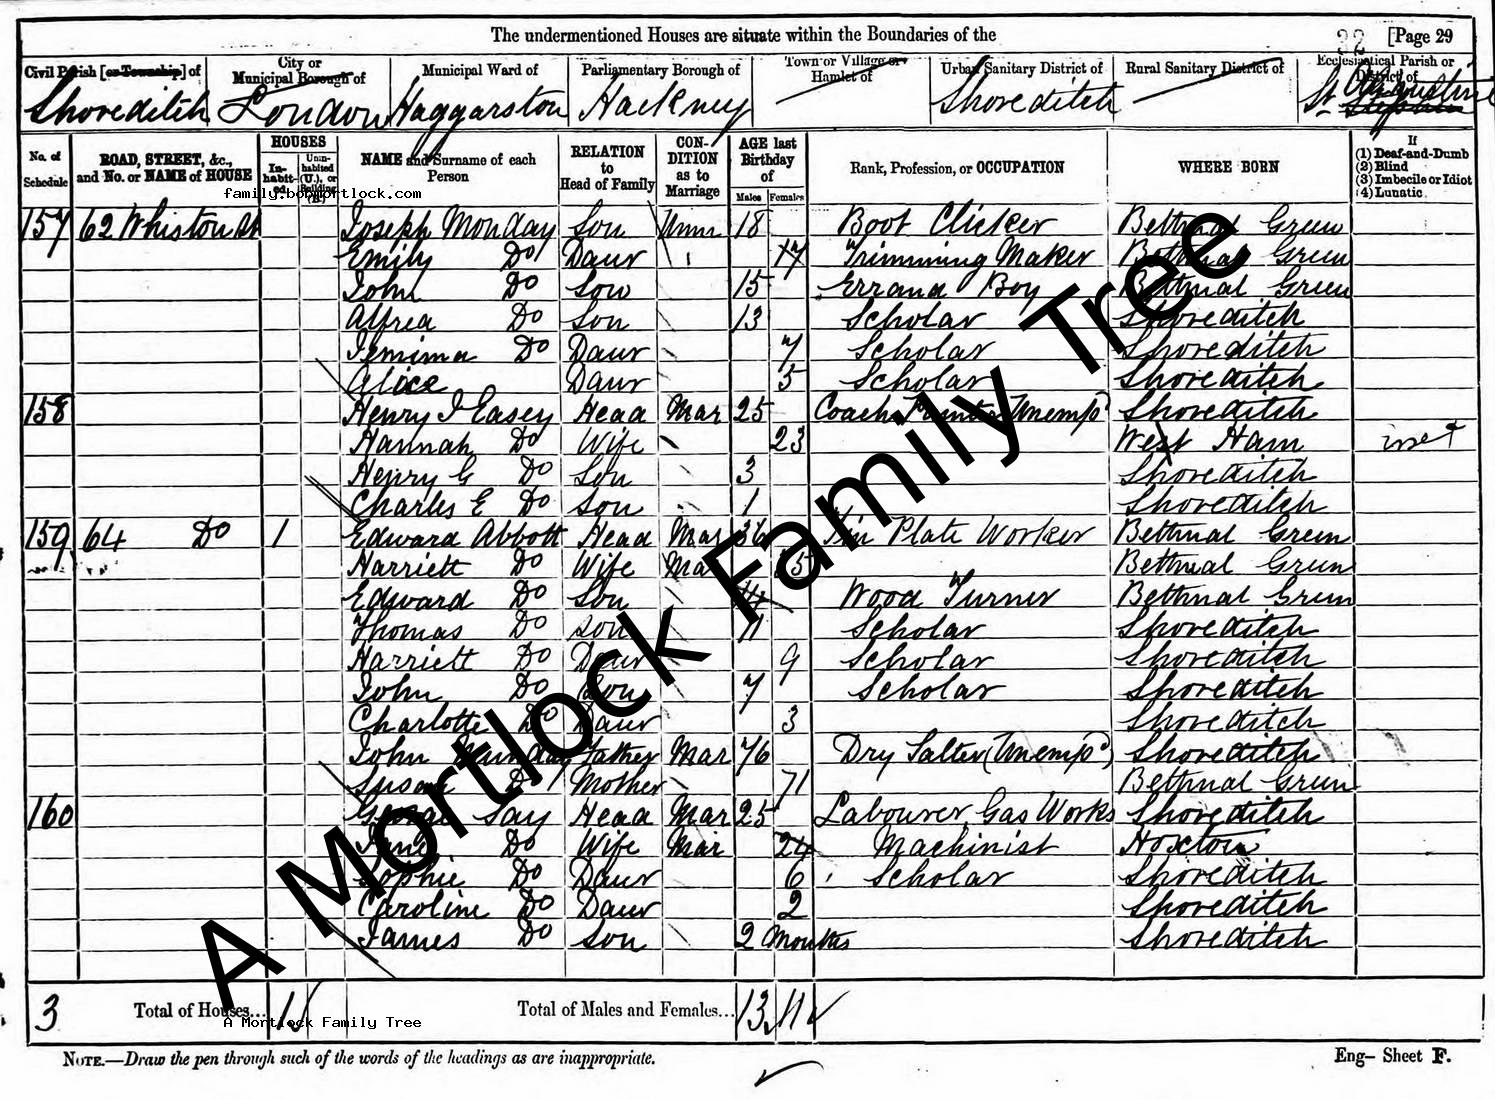 The undermentioned Houses are situate within the Boundaries of the
32 [Page 29
Civil Parish [or Township] of
City or Municipal Borough of
Municipal Ward of
Parliamentary Borough of
Town or Village or Hamlet of
Urban Sanitary District of
Rural Sanitary District of
Ecclesiastical Parish or District of
Shoreditch London Haggarston Hackney Shoreditch St Augustine Stephen
No. of Schedule
ROAD, STREET, &c., and No. or NAME of HOUSE
HOUSES
Inhabited
Uninhabited (U.), or Building (B.)
NAME and Surname of each Person
RELATION to Head of Family
CONDITION as to Marriage
AGE last Birthday of
Males Females
Rank, Profession, or OCCUPATION
WHERE BORN
If
(1) Deaf-and-Dumb
(2) Blind
(3) Imbecile or Idiot
(4) Lunatic
family.bobmortlock.com
157 62 Whiston St Joseph Monday Son Unm 18 Boot Clicker Bethnal Green
Emily Do Daur 17 Trimming Maker Bethnal Green
John Do Son 15 Errand Boy Bethnal Green
Alfred Do Son 13 Scholar Shoreditch
Jemima Do Daur 7 Scholar Shoreditch
Alice Daur 5 Scholar Shoreditch
158 Henry J Easey Head Mar 25 Coach Painter Unempd Shoreditch
Hannah Do Wife 23 West Ham
Henry G Do Son 3 Shoreditch
Charles E Do Son 1 Shoreditch
159 64 Do 1 Edward Abbott Head Mar 36 Tin Plate Worker Bethnal Green
Harriett Do Wife Mar 35 Bethnal Green
Edward Do Son 14 Wood Turner Bethnal Green
Thomas Do Son 11 Scholar Shoreditch
Harriett Do Daur 9 Scholar Shoreditch
John Do Son 7 Scholar Shoreditch
Charlotte Do Daur 3 Shoreditch
John Munday Father Mar 76 Dry Salter (Unempd) Shoreditch
Susan Do Mother 71 Bethnal Green
160 George Say Head Mar 25 Labourer Gas Works Shoreditch
Jane Do Wife Mar 24 Machinist Hoxton
Sophie Do Daur 6 Scholar Shoreditch
Caroline Do Daur 2 Shoreditch
James Do Son 2 Months Shoreditch
A Mortlock Family Tree
3 Total of Houses... 1 Total of Males and Females... 13 11
A Mortlock Family Tree
NOTE.—Draw the pen through such of the words of the headings as are inappropriate.
Eng— Sheet F.